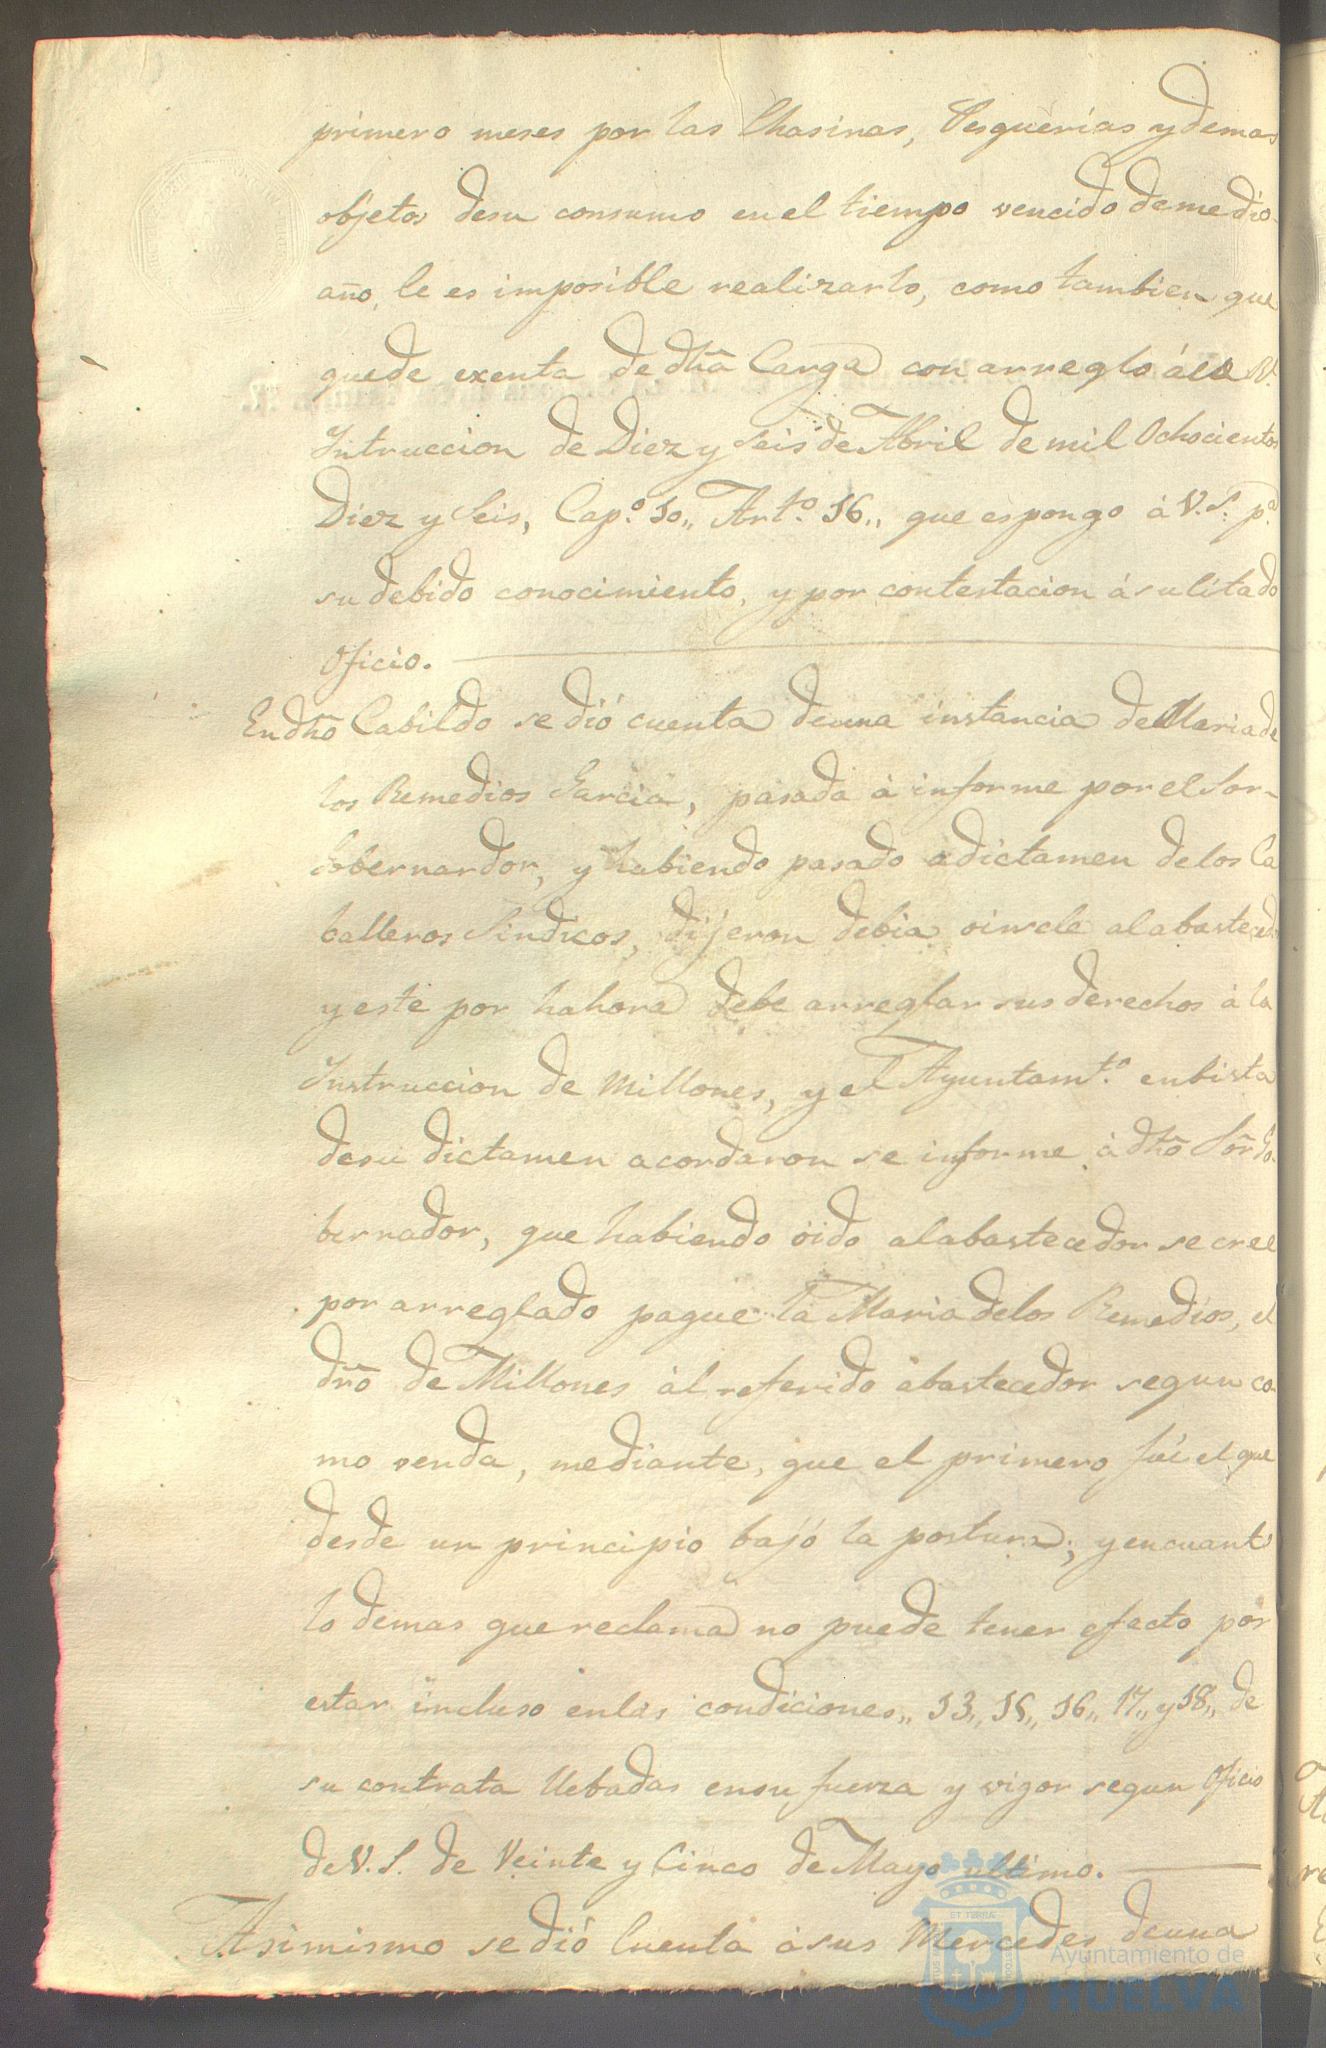 primero meses por las Chasinas, Pesquerías y demas
objetos desu consumo en el tiempo vencido de medio
año, le es imposible realizarlo, como tambien que
quede exenta de dha Carga con arreglo á la Rl.
Intruccion de Diez y seis de Abril de mil Ochocientos
Diez y Seis, Cap.º 10,, Art.º 16,, que espongo á V.S. p.ª
su debido conocimiento, y por contestacion á su litado
Oficio.
En dho Cabildo se dió cuenta de una instancia de Maria de
los Remedios Garcia, pasada á informe por el Sor
Gobernardor, y habiendo pasado a dictamen delos Ca
balleros Sindicos, dijeron debia oirsele al abasteced.
y este por hahora debe arreglar sus derechos á la
Instruccion de Millones, y el Ayuntamt.º enbista
desu dictamen acordaron se informe á dho Sor Go
bernador, que habiendo öido alabastecedor se cree
por arreglado pague la Maria delos Remedios, el
dro de Millones ál referido abastecedor segun co
mo venda, mediante, que el primero fué el que
desde un principio bajó la postura; y encuanto
lo demas que reclama no puede tener efecto por
estar incluso enlas condiciones,, 13,, 15,, 16,, 17,, y 18,, de
su contrata llebadas ensu fuerza y vigor segun Oficio
de V.S. de Veinte y Cinco de Mayo ultimo.
Asimismo se dió Cuenta á sus Mercedes deuna
Ayuntamiento de
HUELVA